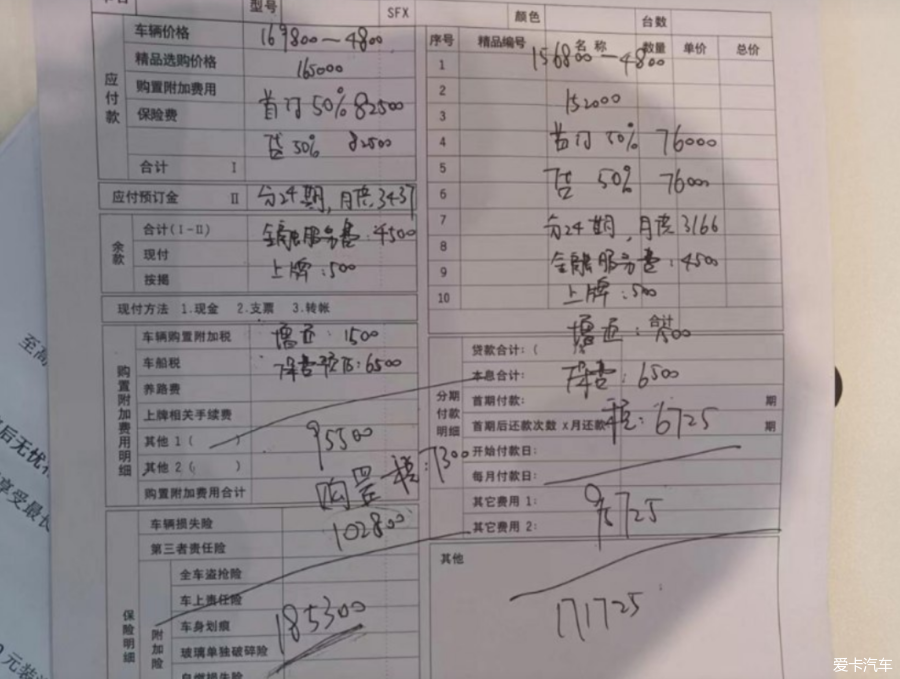 型号
SFX
颜色
台数
应付款
车辆价格
169800-4800
精品选购价格
165000
购置附加费用
首订50% 82500
保险费
贷50% 82500
合计 I
应付预订金 II
分24期,月供3437
余款
合计(I-II)
金融服务费:4500
现付
上牌:500
按揭
现付方法 1.现金 2.支票 3.转帐
购置附加费用明细
车辆购置附加税
1500
车船税
:6500
养路费
上牌相关手续费
其他1( )
95500
其他2( )
购置税:7300
购置附加费用合计
102800
保险明细
车辆损失险
第三者责任险
附加险
全车盗抢险
车上责任险
185300
车身划痕
玻璃单独破碎险
自燃损失险
序号 精品编号 名称 数量 单价 总价
1
156800-4800
2
3
152000
4
首订50% 76000
5
贷50% 76000
6
7
分24期,月供3166
8
金融服务费:4500
9
上牌:500
10
合计
分期付款明细
贷款合计:(
本息合计:
:6500
首期付款: 期
税:6725
首期后还款次数x月还款 期
开始付款日:
每月付款日:
其它费用1:
95725
其它费用2:
其他
171725
至高
后无忧
享受最长
元装
爱卡汽车